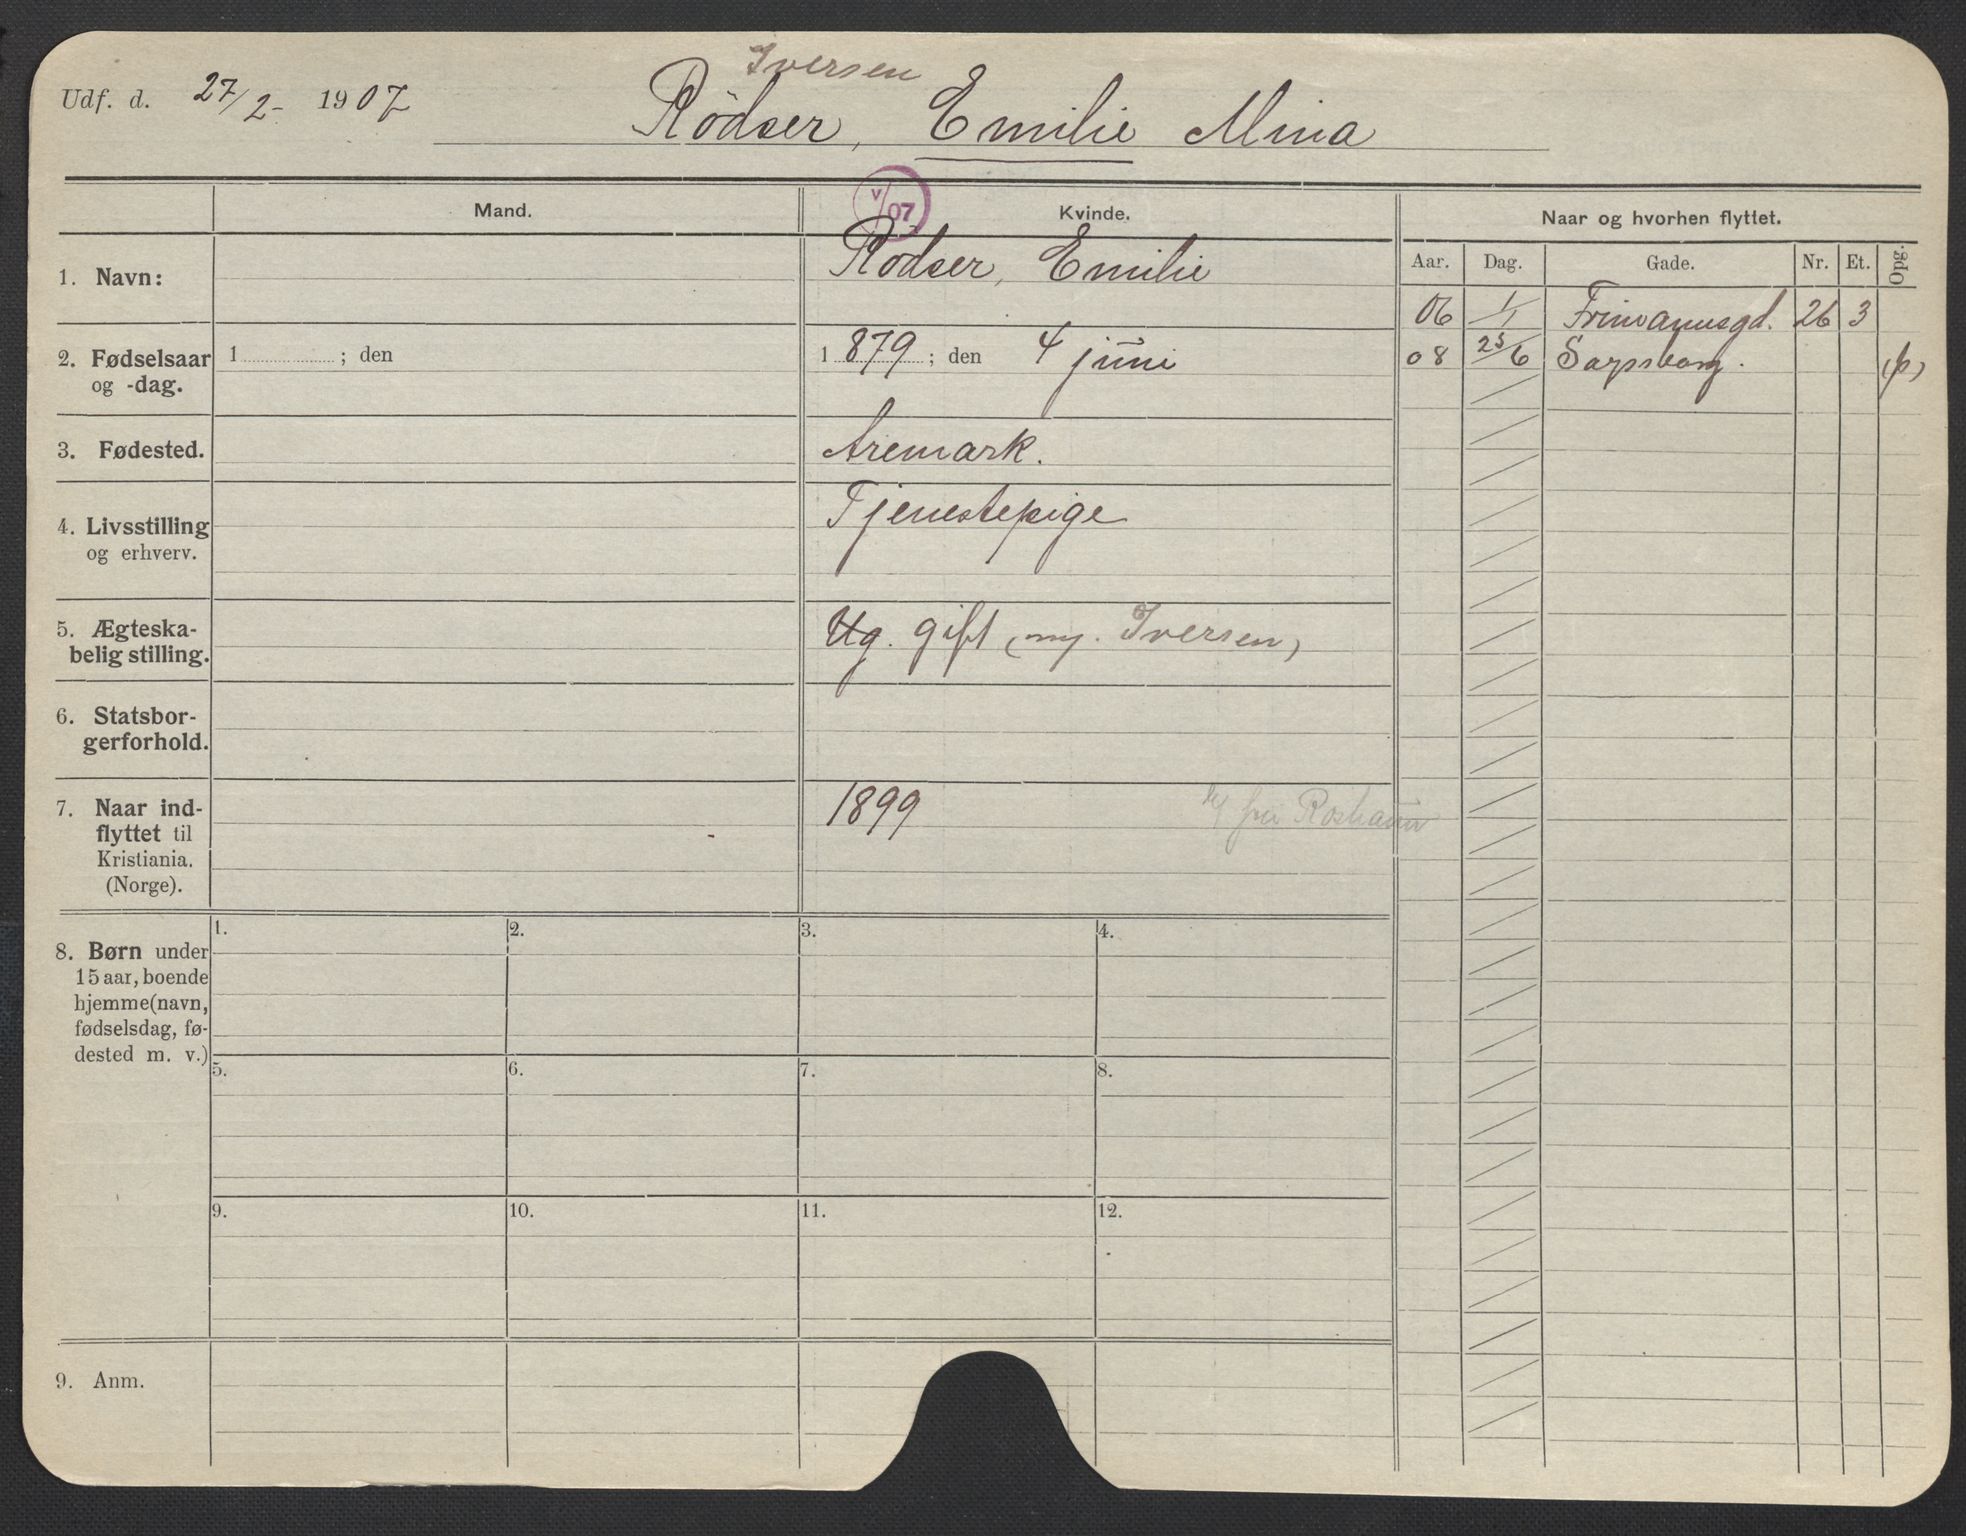 Iversen
Udf. d. 27/2- 1907 Rödser, Emilie Mina
V/07
Mand. Kvinde. Naar og hvorhen flyttet.
Aar. Dag. Gade. Nr. Et. Opg.
1. Navn: Rödser, Emilie
06 1/1 Frimannsgd. 26 3
2. Fødselsaar og -dag. 1 ; den 1879 ; den 4 juni
08 25/6 Sarpsborg. (p)
3. Fødested. Aremark.
4. Livsstilling og erhverv. Tjenestepige
5. Ægteska-
belig stilling. Ug. gift (my. Iversen)
6. Statsbor-
gerforhold.
7. Naar ind- 1899 fra
flyttet til
Kristiania.
(Norge).
8. Børn under
15 aar, boende
hjemme (navn,
fødselsdag, fø-
dested m. v.)
1. 2. 3. 4.
5. 6. 7. 8.
9. 10. 11. 12.
9. Anm.